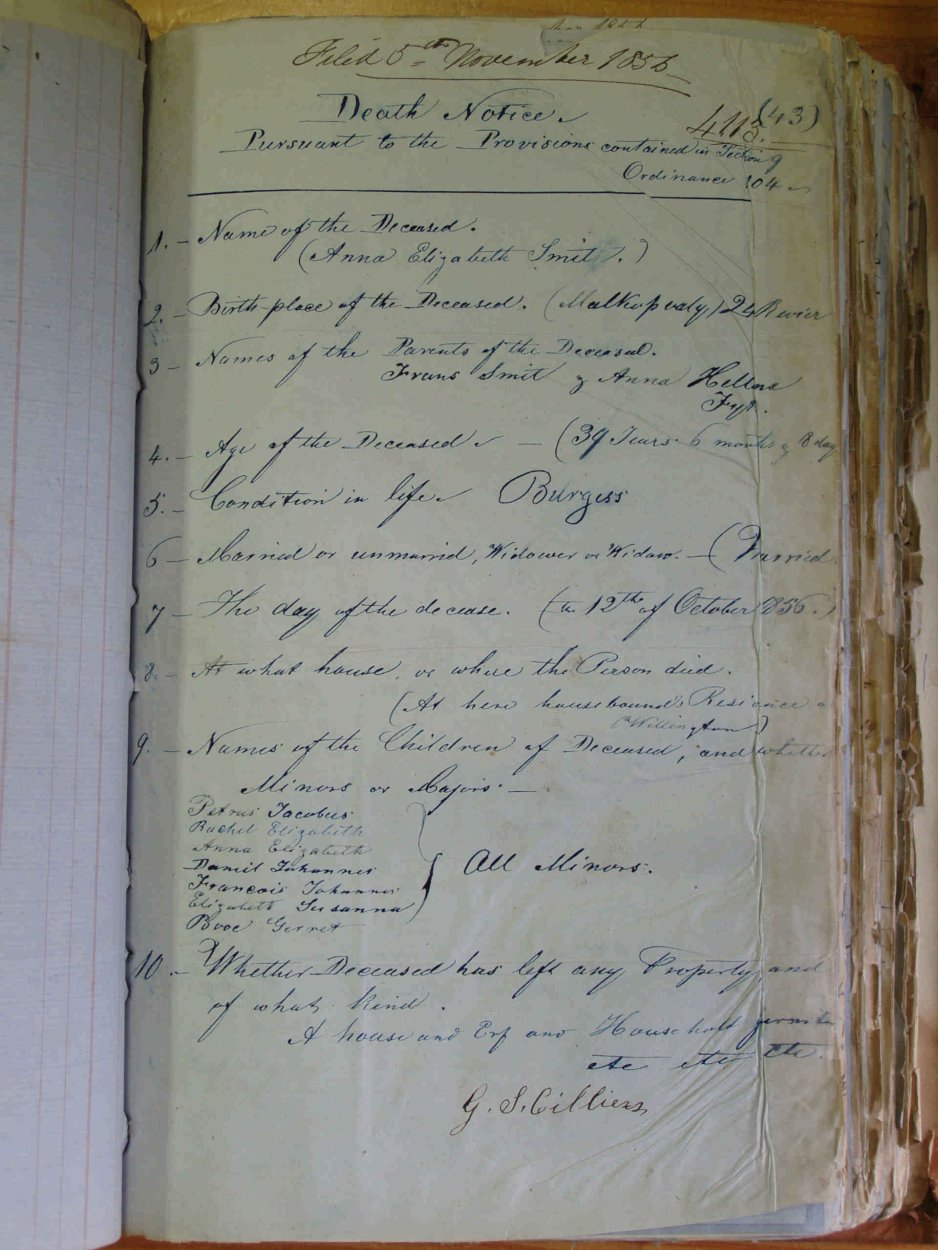 Filed 5th November 1856
Death Notice
(43)
4113.
Pursuant to the Provisions contained in Section 9
Ordinance 104
1. - Name of the Deceased.
(Anna Elizabeth Smit.)
2. - Birth place of the Deceased. (Malkopvaly) 24 Rivier
3 - Names of the Parents of the Deceased.
Frans Smit & Anna
4. - Age of the Deceased - (39 Years 6 months & 8 day
5. - Condition in life Burgess
6 - Married or unmarried, Widower or Widow. - (Married
7 - The day of the decease. (the 12th of October 1856.)
8. - At what house, or where the Person died.
(At here housebound's Residence
Willington)
9. - Names of the Children of Deceased, and whether
Minors or Majors. -
Petrus Jacobus
Rachel Elizabeth
Anna Elizabeth
Daniel Johannes
Francois Johannes
Elizabeth Susanna
Gerret
All Minors.
10 - Whether Deceased has left any Property, and
of what kind.
A house and Erf and Household
etc etc etc.
G. S. Cilliers